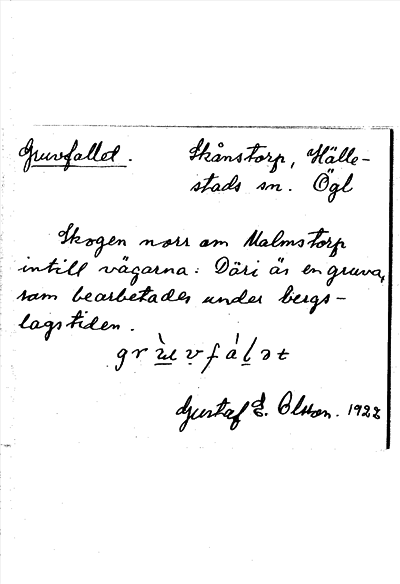 Gruvfallet.
Skånstorp, Hälle-
stads sn. Ögl
Skogen norr om Malmstorp
intill vägarna. Däri är en gruva,
som bearbetades under bergs-
lagstiden.
grùvfálət
Gustaf E. Olsson. 1922